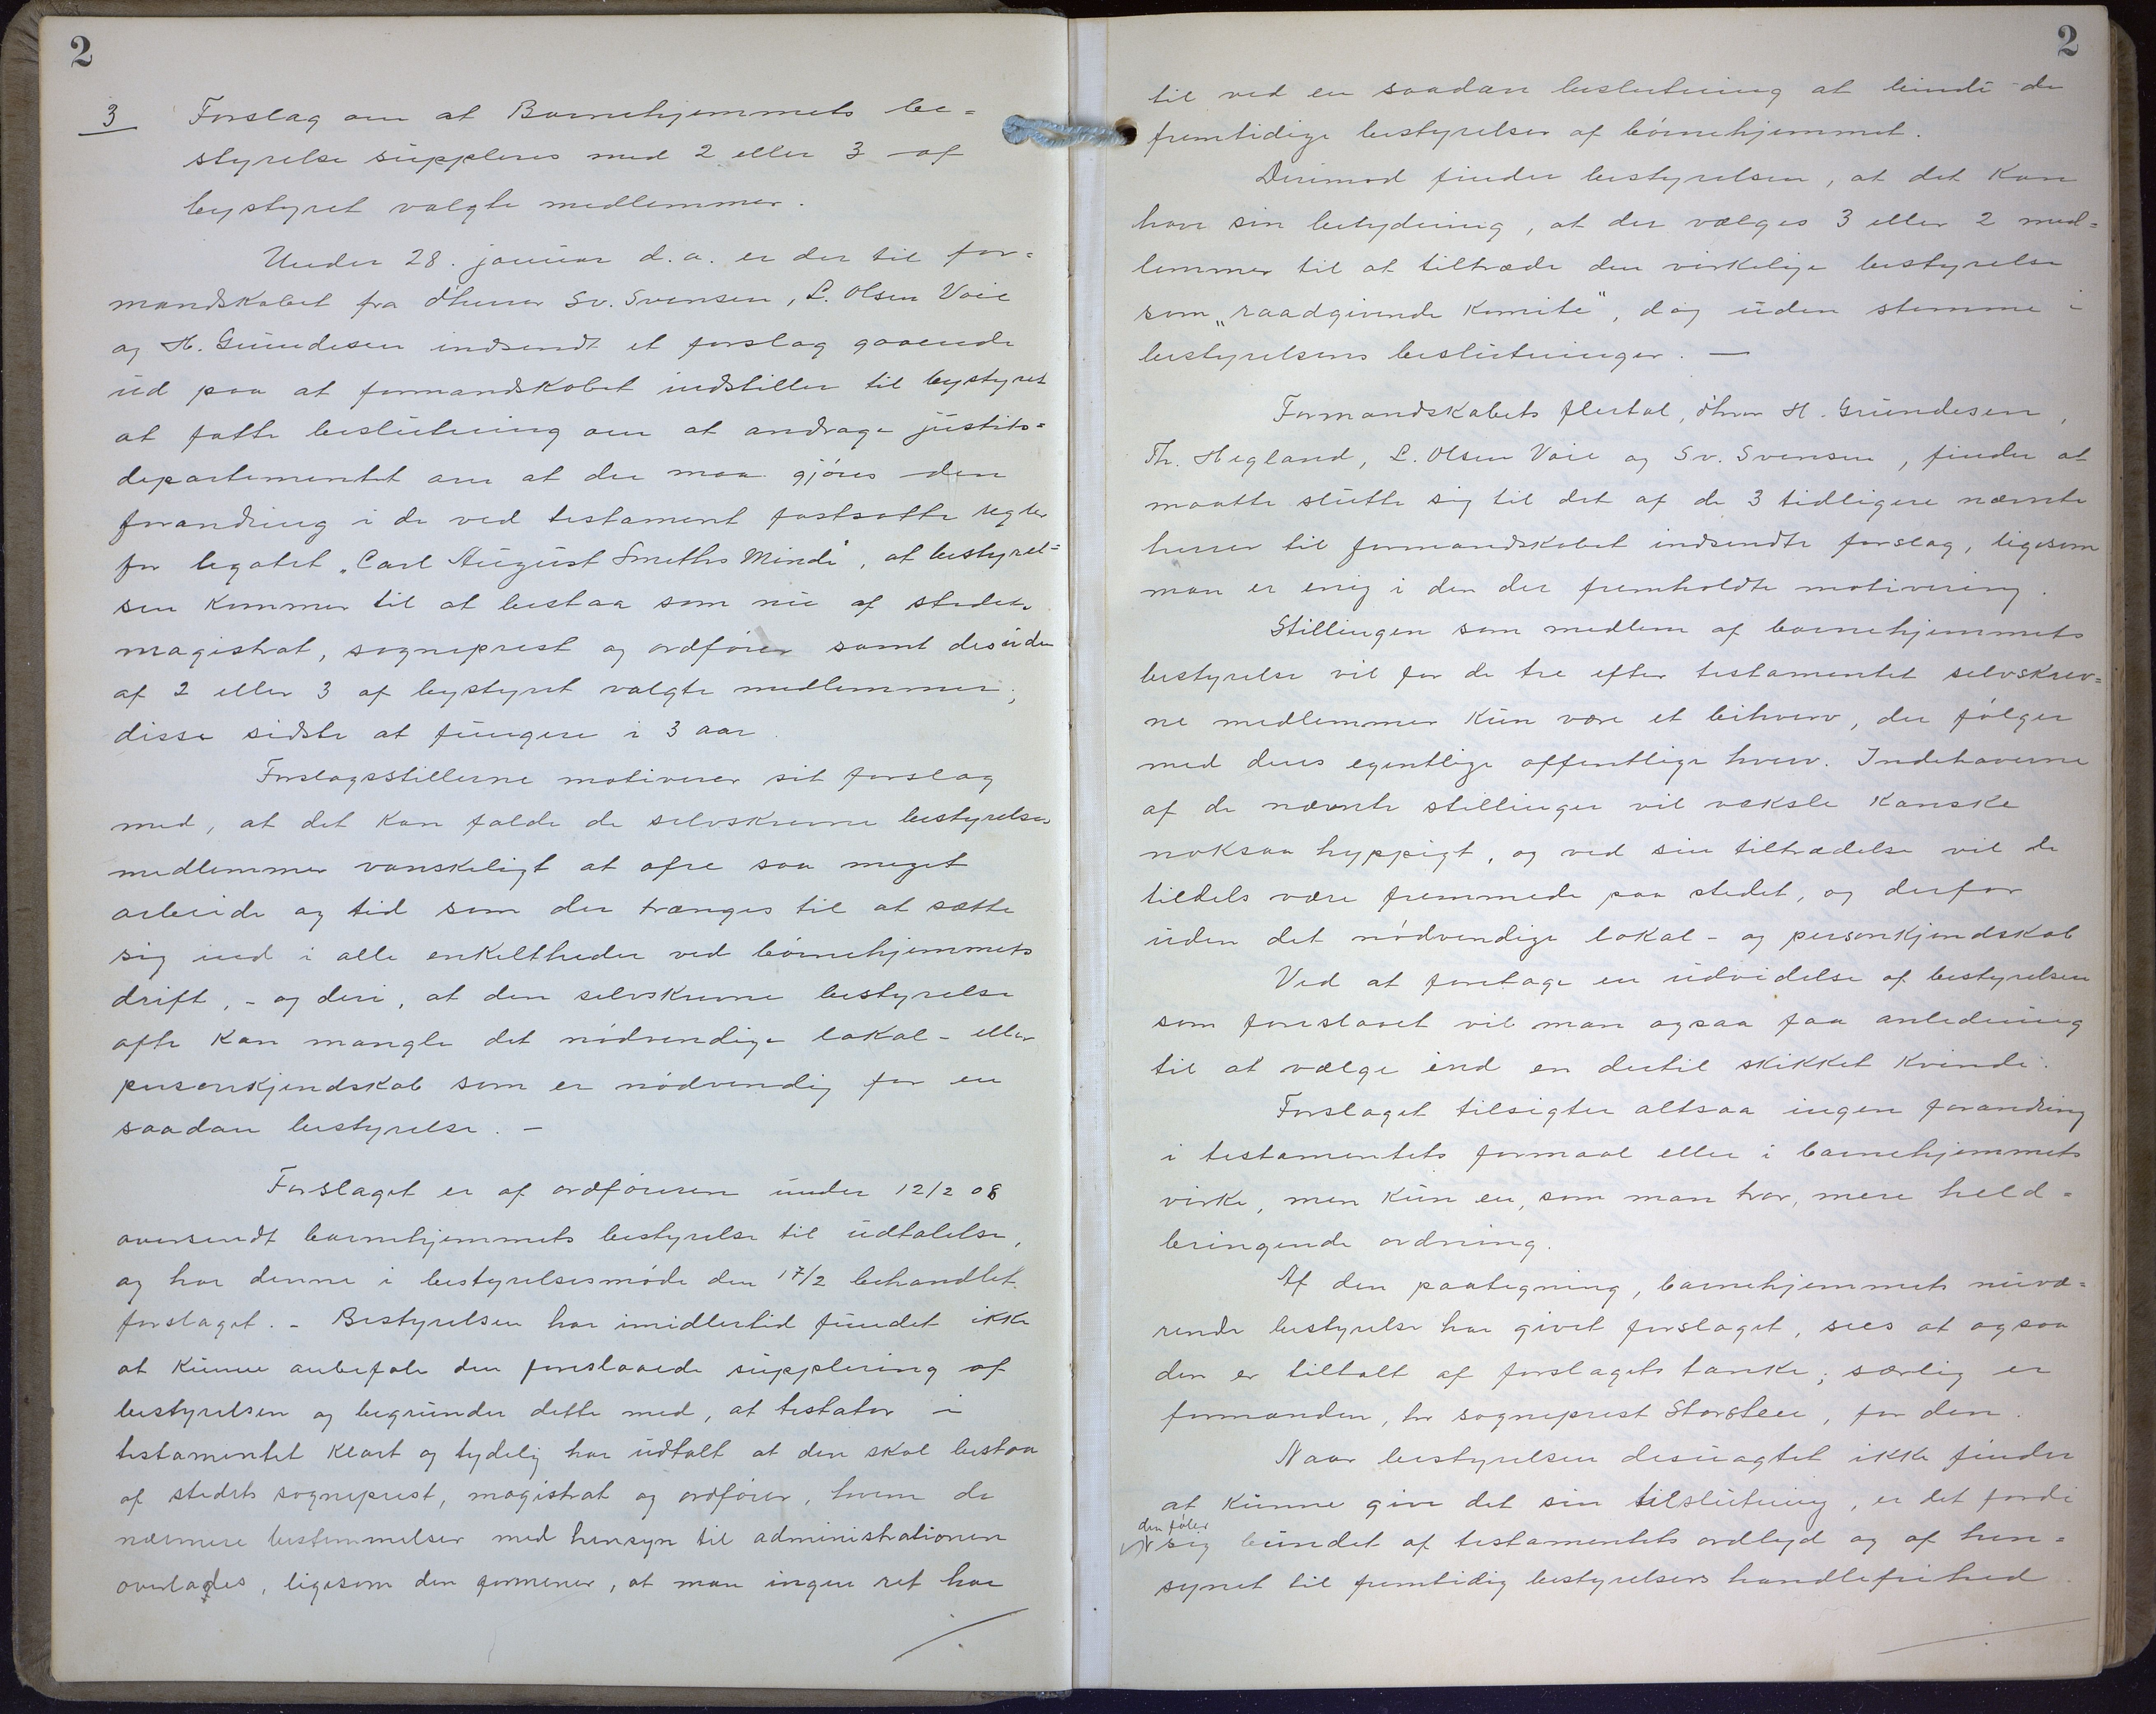 2
3 Forslag om at Barnehjemmets be=
styrelse suppleres med 2 eller 3 af
bystyret valgte medlemmer.
Under 28. januar d.a. er der til for=
mandskabet fra d'herrer Sv. Svensen, L. Olsen Voie
og H. Gundesen indsendt et forslag gaaende
ud paa at formandskabet indstiller til bystyret
at fatte beslutning om at andrage justits=
departementet om at der maa gjöres den
forandring i de ved testament fastsatte regler
for legatet „Carl August Smeths Minde", at bestyrel=
sen kommer til at bestaa som nu af stedets
magistrat, sogneprest og ordförer samt desuden
af 2 eller 3 af bystyret valgte medlemmer;
disse sidste at fungere i 3 aar.
Forslagsstillerne motiverer sit forslag
med, at det kan falde de selvskrevne bestyrelses
medlemmer vanskeligt at ofre saa meget
arbeide og tid som der trænges til at sætte
sig ind i alle enkeltheder ved börnehjemmets
drift, - og deri, at den selvskrevne bestyrelse
ofte kan mangle det nödvendige lokal- eller
personkjendskab som er nödvendig for en
saadan bestyrelse. -
Forslaget er af ordföreren under 12/2 08
oversendt barnehjemmets bestyrelse til udtalelse,
og har denne i bestyrelsesmöde den 17/2 behandlet
forslaget. - Bestyrelsen har imidlertid fundet ikke
at kunne anbefale den foreslaaede supplering af
bestyrelsen og begrunder dette med, at testator i
testamentet klart og tydelig har udtalt at den skal bestaa
af stedets sogneprest, magistrat og ordförer, hvem de
nærmere bestemmelser med hensyn til administrationen
overlades, ligesom den formener, at man ingen ret har
2
til ved en saadan beslutning at binde de
fremtidige bestyrelser af börnehjemmet.
Derimod finder bestyrelsen, at det kan
have sin betydning, at der vælges 3 eller 2 med=
lemmer til at tiltræde den virkelige bestyrelse
som „raadgivende komite", dog uden stemme i
bestyrelsens beslutninger. —
Formandskabets flertal, d'hrr H. Gundesen,
Th. Hegland, L. Olsen Voie og Sv. Svensen, finder at
maatte slutte sig til det af de 3 tidligere nævnte
herrer til formandskabet indsendte forslag, ligesom
man er enig i den der fremholdte motivering.
Stillingen som medlem af barnehjemmets
bestyrelse vil for de tre efter testamentet selvskrev=
ne medlemmer kun være et bihverv, der fölger
med deres egentlige offentlige hverv. Indehaverne
af de nævnte stillinger vil veksle kanske
noksaa hyppigt, og ved sin tiltrædelse vil de
tildels være fremmede paa stedet, og derfor
uden det nödvendige lokal- og personkjendskab
Ved at foretage en udvidelse af bestyrelsen
som foreslaaet vil man ogsaa faa anledning
til at vælge ind en dertil skikket kvinde.
Forslaget tilsigter altsaa ingen forandring
i testamentets formaal eller i barnehjemmets
virke, men kun en, som man tror, mere held=
bringende ordning.
Af den paategning, barnehjemmets nuvæ=
rende bestyrelse har givet forslaget, sees at ogsaa
den er tiltalt af forslagets tanke; særlig er
formanden, hr sogneprest Storsteen, for den.
Naar bestyrelsen desuagtet ikke finder
at kunne give det sin tilslutning, er det fordi
den föler
sig bundet af testamentets ordlyd og af hen=
synet til fremtidig bestyrelsers handlefrihed